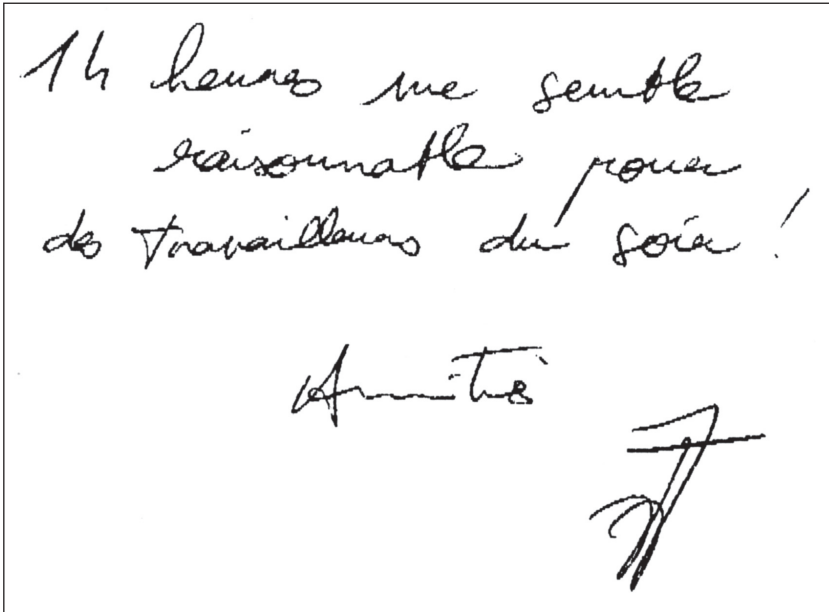 14 heures me semble
raisonnable pour
des travailleurs du soir !
Amitiés